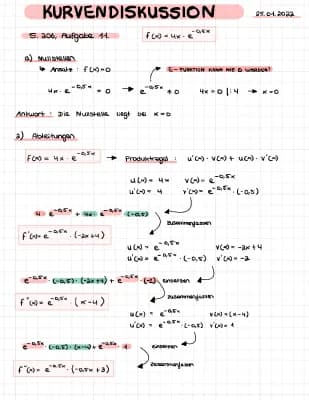 KURVENDISKUSSION 25.01.2022
S. 206, Aufgabe 11 f(x) = 4x · e^-0,5x
a) Nullstellen
↳ Ansatz: f(x)=0 E-FUNKTION KANN NIE 0 WERDEN!
4x · e^-0,5x = 0 → e^-0,5x ≠ 0 4x = 0 |:4 → x=0
Antwort: Die Nullstelle liegt bei x=0
2) Ableitungen
f(x) = 4x · e^-0,5x → Produktregel: u'(x) · v(x) + u(x) · v'(x)
u(x) = 4x v(x) = e^-0,5x
u'(x) = 4 v'(x) = e^-0,5x · (-0,5)
4 · e^-0,5x + 4x · e^-0,5x · (-0,5)
zusammenfassen
f'(x) = e^-0,5x · (-2x+4)
u(x) = e^-0,5x v(x) = -2x+4
u'(x) = e^-0,5x · (-0,5) v'(x) = -2
e^-0,5x · (-0,5) · (-2x+4) + e^-0,5x · (-2) einsetzen
zusammenfassen
f''(x) = e^-0,5x · (x-4)
u(x) = e^-0,5x v(x) = (x-4)
u'(x) = e^-0,5x · (-0,5) v'(x) = 1
e^-0,5x · (-0,5) · (x-4) + e^-0,5x · 1 einsetzen
zusammenfassen
f'''(x) = e^-0,5x · (-0,5x+3)